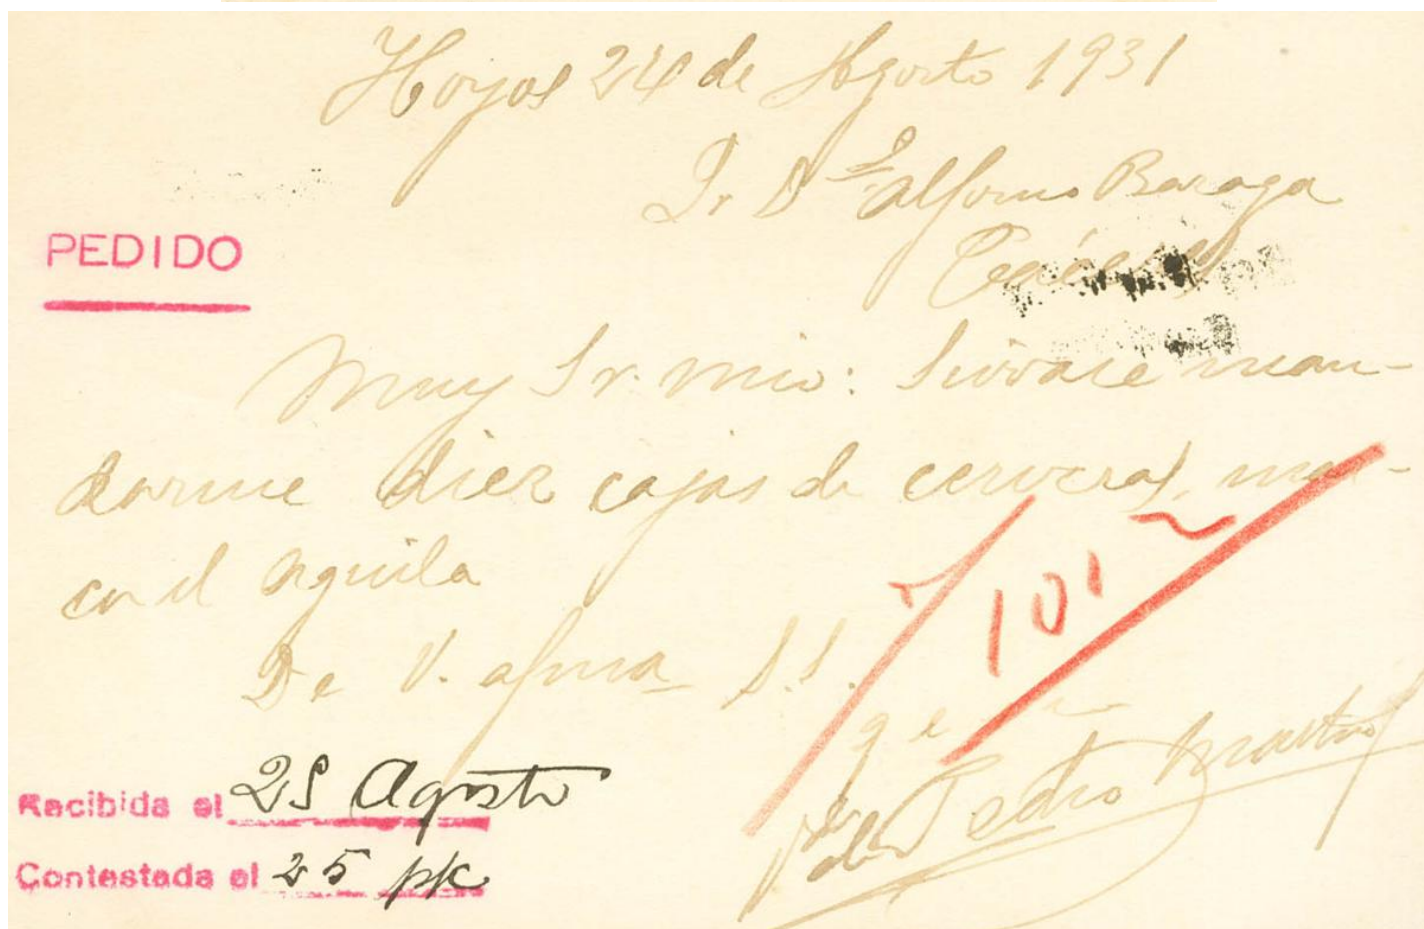 Hoyos 24 de Agosto 1931
Sr D. Alfonso Baraga
Cáceres
PEDIDO
Muy Sr. mio: Sirvase man-
darme diez cajas de cervezas, mar-
ca el Aguila
De V. afma S.S.
q e
Pedro Martin
101
Recibida el 25 Agosto
Contestada el 25 p/c